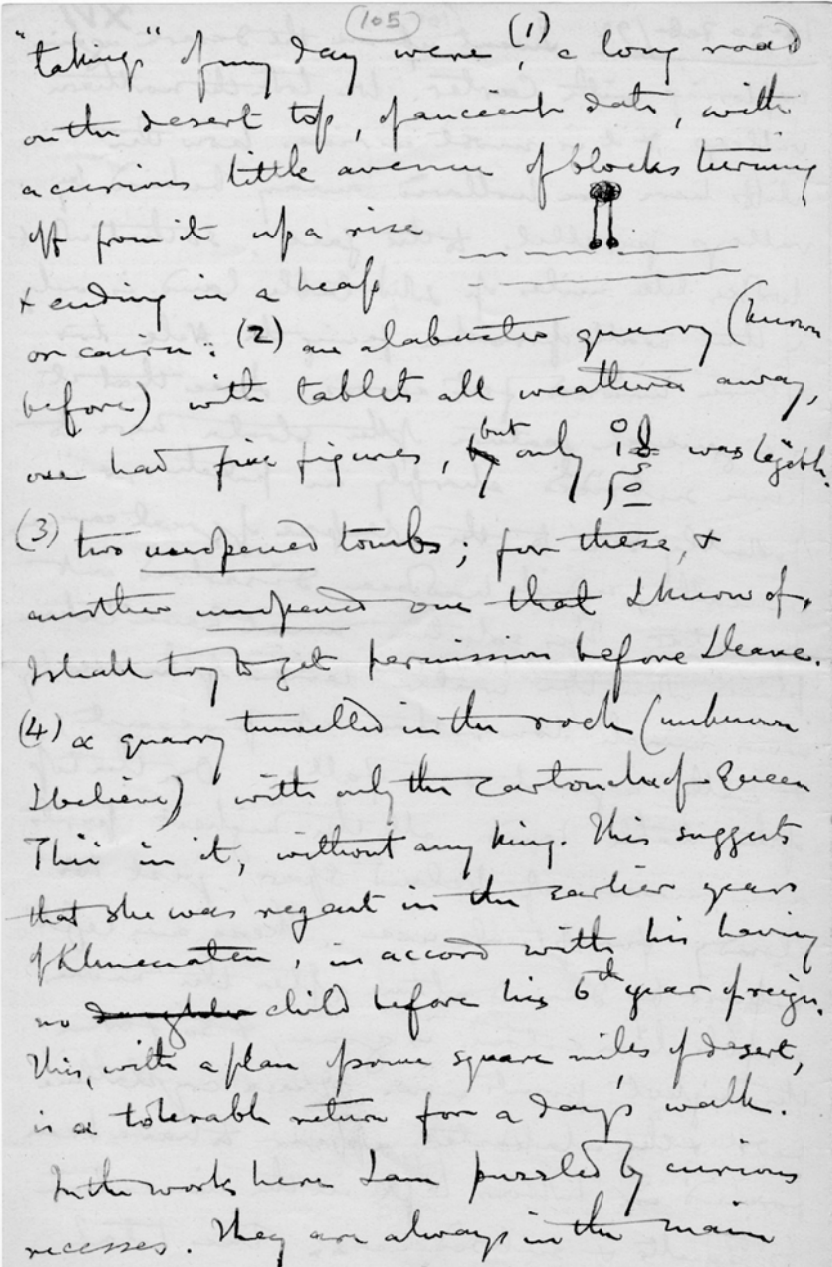 (105)
"takings" of my day were, (1) a long road
on the desert top, of ancient date, with
a curious little avenue of blocks turning
off from it up a rise
& ending in a heap
or cairn: (2) an alabaster quarry (known
before) with tablets all weathered away,
one had five figures, but only was legible.
(3) two unopened tombs; for these, &
another unopened one that I know of,
I shall try to get permission before I leave.
(4) a quarry tunnelled in the rock (unknown
I believe) with only the cartouche of Queen
Thii in it, without any king. This suggests
that she was regent in the earlier years
of Khuenaten, in accord with his having
no daughter child before his 6th year of reign.
This, with a plan of some square miles of desert,
is a tolerable return for a day's walk.
In the works here I am puzzled by curious
recesses. They are always in the main